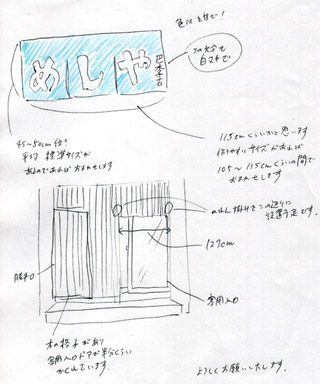 色は紺で!
この文字も
白ヌキで
めしや
巴本吉
45~50cm位!
平均標準サイズが
あるのであればおまかせします
115cmくらいかと思います
作りやすいサイズがあれば
105~115cmくらいの間で
おまかせします
のれん掛けをこの辺りに
設置予定です。
127cm
勝手口
客用入口
木の格子があり
客用入口ドアが半分くらい
かくれています。
よろしくお願いいたします。